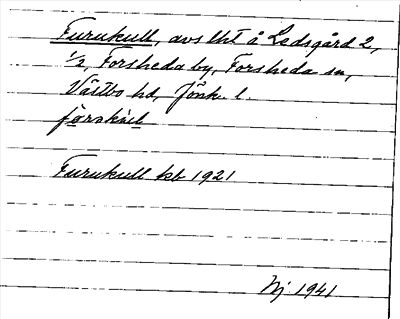 Furukull, avs lht å Ledsgård 2,
1/2, Forsheda by, Forsheda sn,
Västbo hd, Jönk. l.
Furukull kb 1921
Nj 1941